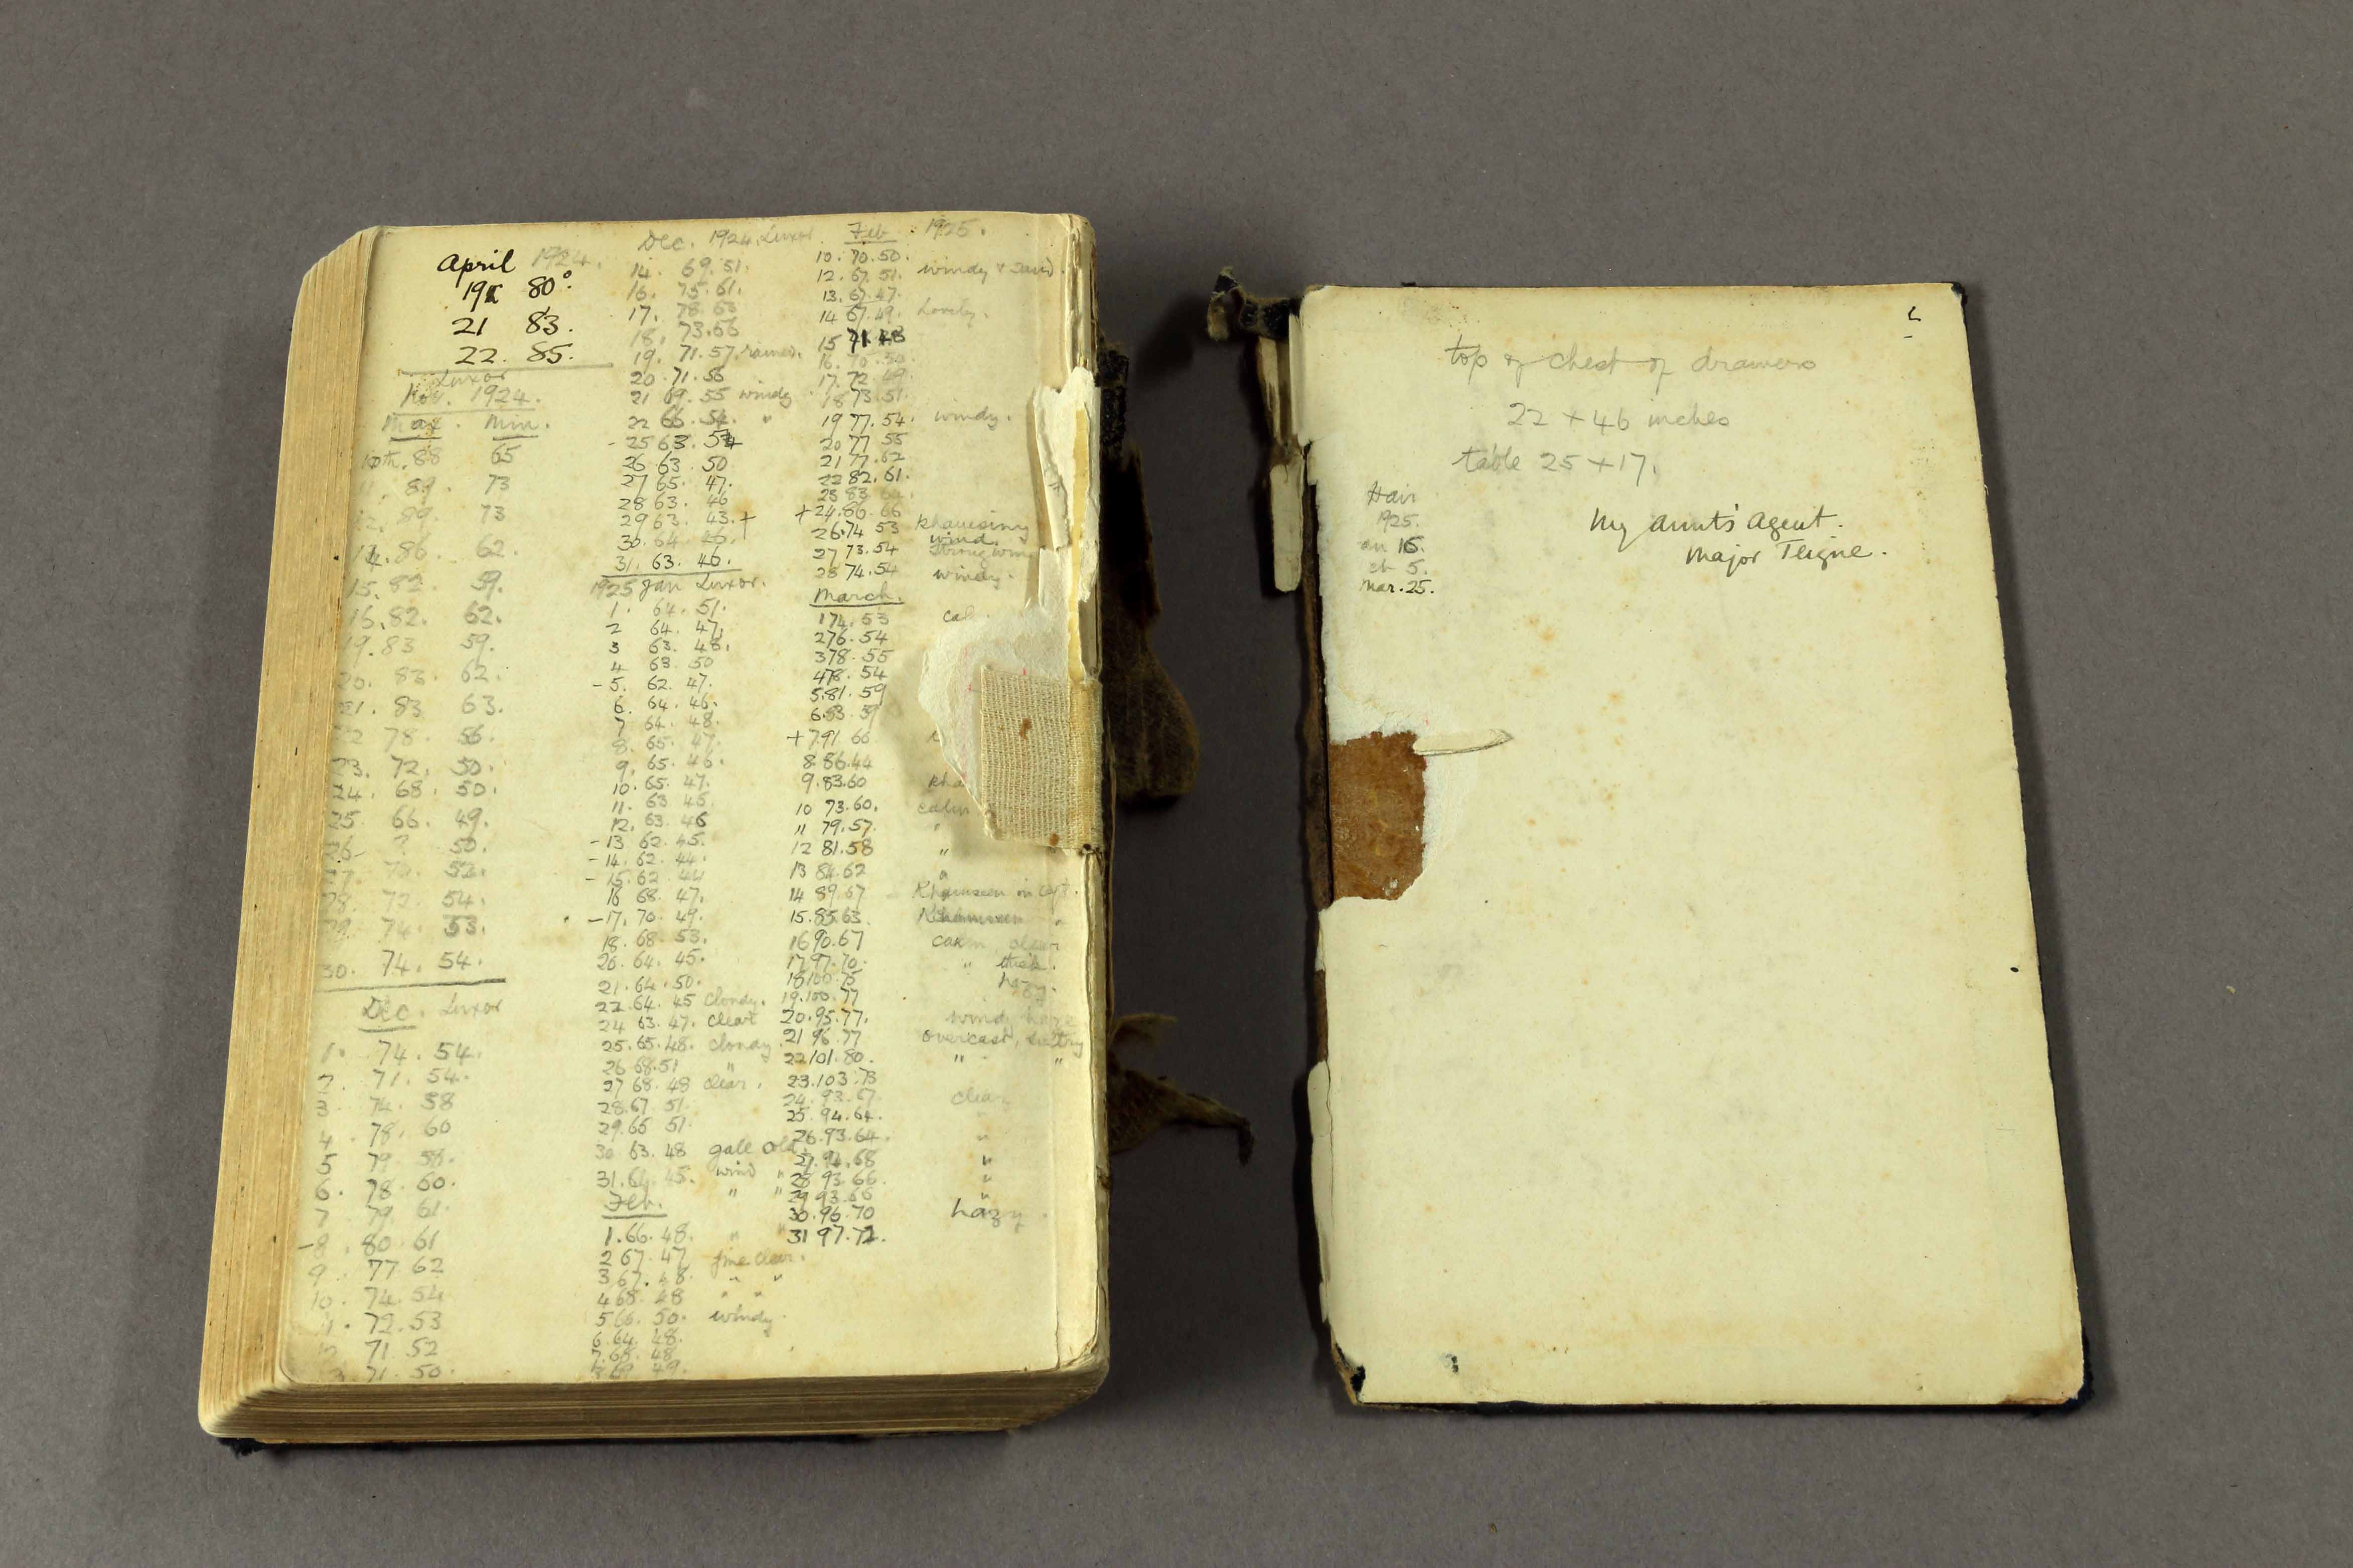 April 1924.
19 80°.
21 83.
22. 85.
Luxor
Nov. 1924.
Max. Min.
10th. 88 65
11. 89. 73
12. 89. 73
14. 86. 62.
15. 82. 59.
16. 82. 62.
19. 83 59.
20. 83. 62.
21. 83 63.
22 78. 56.
23. 72. 50.
24. 68. 50.
25. 66. 49.
26 ? 50.
52.
28. 72. 54.
29. 74. 53.
30. 74. 54.
Dec. Luxor
1. 74. 54.
2. 71. 54.
3. 74. 58
4. 78. 60
5 79 58.
6. 78. 60.
7 79 61.
-8. 80. 61
9. 77 62
10. 74. 54
11. 72. 53
71 52
71. 50.
Dec. 1924. Luxor
14. 69. 51.
16. 75. 61.
17. 78. 63
18. 73. 56
19. 71. 57. rained.
20. 71. 56
21 69. 55 windy
22 66. 54. "
-25 63. 54
26. 63. 50
27 65. 47.
28 63. 46
29 63. 43. +
30. 64. 46.
31. 63. 46.
1925 Jan Luxor.
1. 64. 51.
2 64. 47.
3 63. 48.
4 63. 50
-5. 62. 47.
6. 64. 46.
7 64. 48.
8. 65. 47.
9. 65. 46.
10. 65. 47.
11. 63 46.
12. 63. 46
-13 62. 45.
-14. 62. 44.
-15. 62. 44
16 68. 47.
-17. 70. 49.
18. 68. 53.
20. 64. 45.
21. 64. 50.
22. 64. 45 cloudy.
24 63. 47. clear
25. 65. 48. cloudy
26 68. 51 "
27 68. 48 clear.
28. 67 51.
29. 66 51.
30 63. 48 gale cold
31. 64. 45. wind "
Feb. " "
1. 66. 48. " "
2 67. 47 fine clear.
3 67. 48. " "
4 68. 48 " "
5 66. 50. windy.
6. 64. 48.
7. 68. 48
49.
Feb 1925.
10. 70. 50.
12. 67. 51. windy & sand.
13. 67. 47.
14 67. 49. Lovely.
15 71 48
16. 70. 50
17. 72. 49.
18 73. 51.
19 77. 54. windy.
20 77 55
21 77. 62
22 82. 61.
23 83 64.
+24. 86. 66
26. 74 53 Khamsiny wind.
27 73. 54 strong wind
28 74. 54 windy.
March.
1 74. 53
2 76. 54
3 78. 55
4 78. 54
5. 81. 59
6. 83. 59
+7 91 66
8 86. 44
9. 83. 60
10 73. 60. calm
11 79. 57. "
12 81. 58 "
13 84. 62 "
14 89. 67 Khamseen in
15. 85. 63 Khamseen "
16 90. 67 calm, clear
17 97. 70. " thick.
18 100. 75 hazy.
19. 100. 77
20. 95. 77. windy haze
21 96. 77 overcast, sultry
22 101. 80. " "
23. 103. 73
24. 93. 67 clear
25. 94. 64.
26. 93. 64. "
27. 94. 68 "
28 93 66. "
29 93. 66 "
30. 96. 70 hazy.
31 97. 72.
top of chest of drawers
22 + 46 inches
table 25 + 17.
Hair
1925.
an 16.
eb 5.
Mar. 25.
My Aunt's Agent.
Major Teigne.